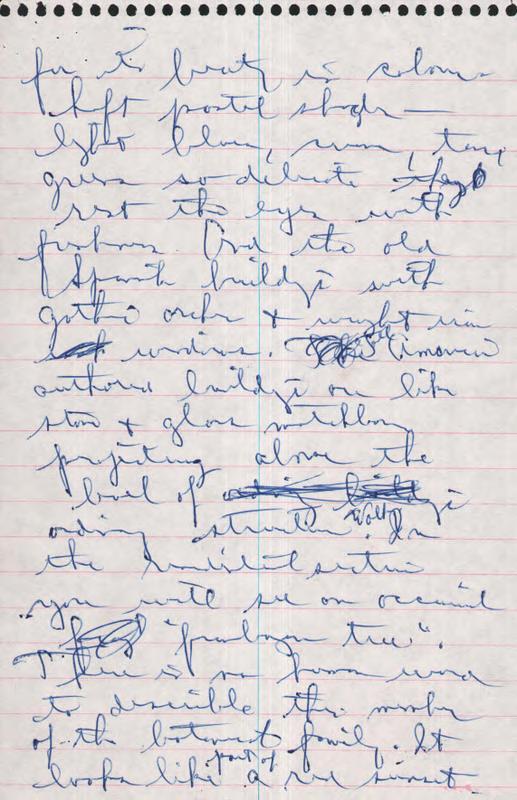 for its beauty is colors
light blues,
greens so delicate they
rest the eyes with
freshness and the old
Spanish buildings with
gothic arches & wrought iron
windows. American
buildings are like
stone & glass matchboxes
projecting above the
level of
ordinary structures. In
the residential section
you will see an occasional
"flamboyan tree".
There is no human word
to describe this member
of the botanical family. It
looks like part of a red sunset